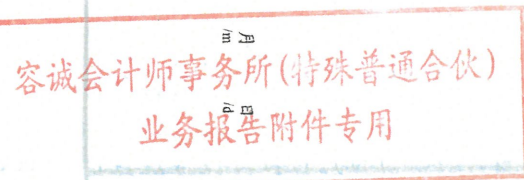 月
/m
容诚会计师事务所(特殊普通合伙)
日
/d
业务报告附件专用